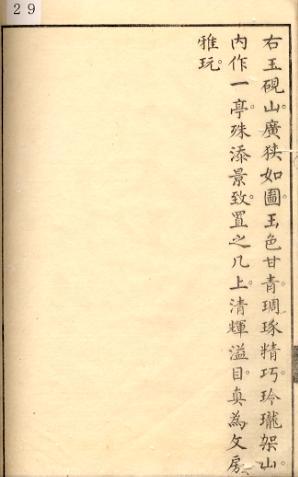 29
右玉硯山。廣狹如圖。玉色甘青。琱琢精巧。玲瓏架山
內作一亭。殊添景致。置之几上。清輝溢目。真為文房
雅玩。